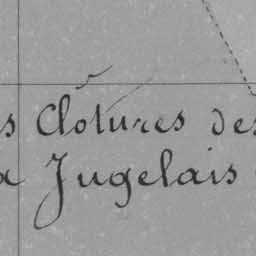 s Clotures des
a Jugelais